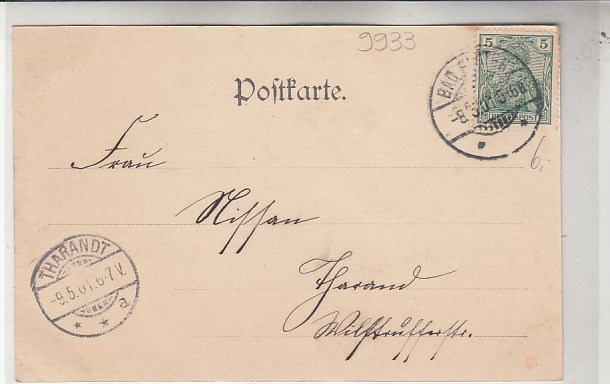 9933
5 5
BAD
8.5.01.5-6N.
POST
Postkarte.
6.-
Frau
Nissan
Tharand
Wilsdrufferstr.
THARANDT
-9.5.01.6-7V.
* * a